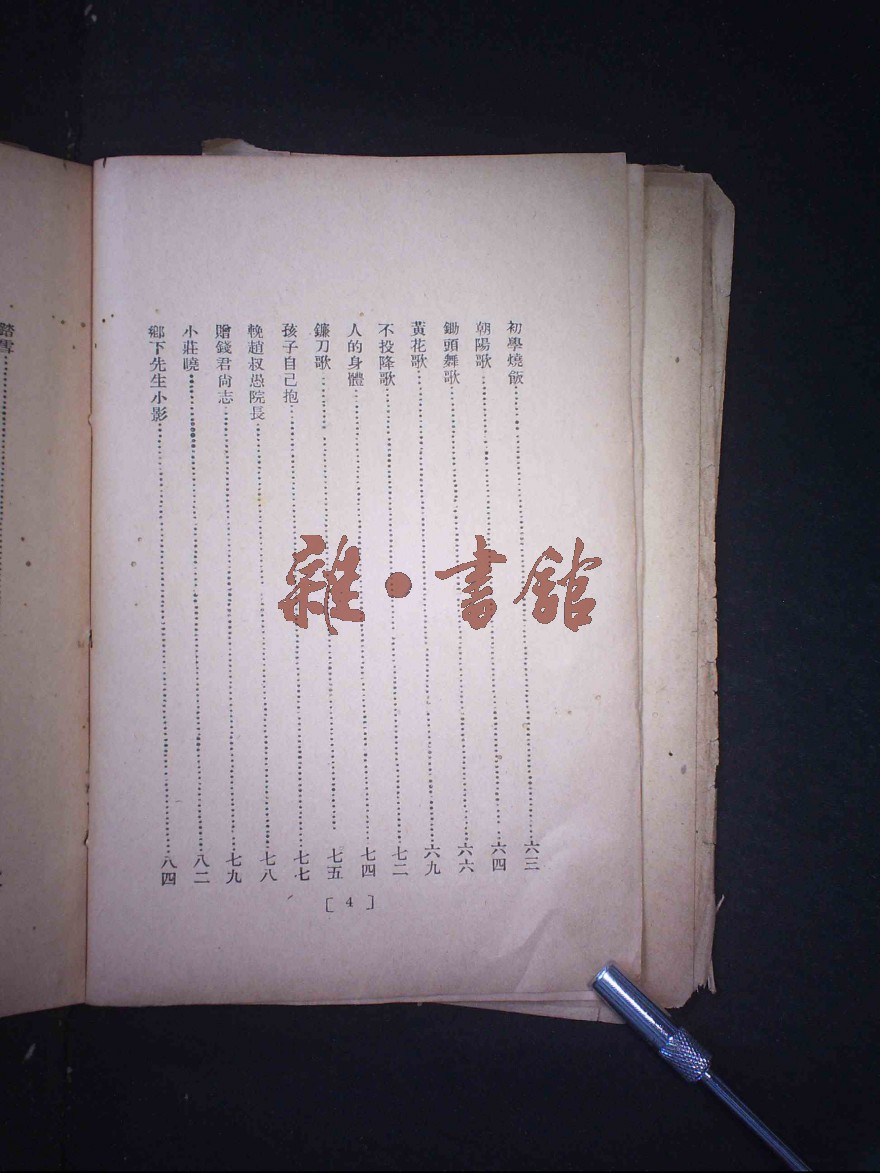 初學燒飯……六三
朝陽歌……六四
鋤頭舞歌……六六
黃花歌……六九
不投降歌……七二
人的身體……七四
鐮刀歌……七五
孩子自己抱……七七
輓趙叔愚院長……七八
贈錢君尙志……七九
小莊曉……八二
鄉下先生小影……八四
[4]
踏雪……
雜·書館